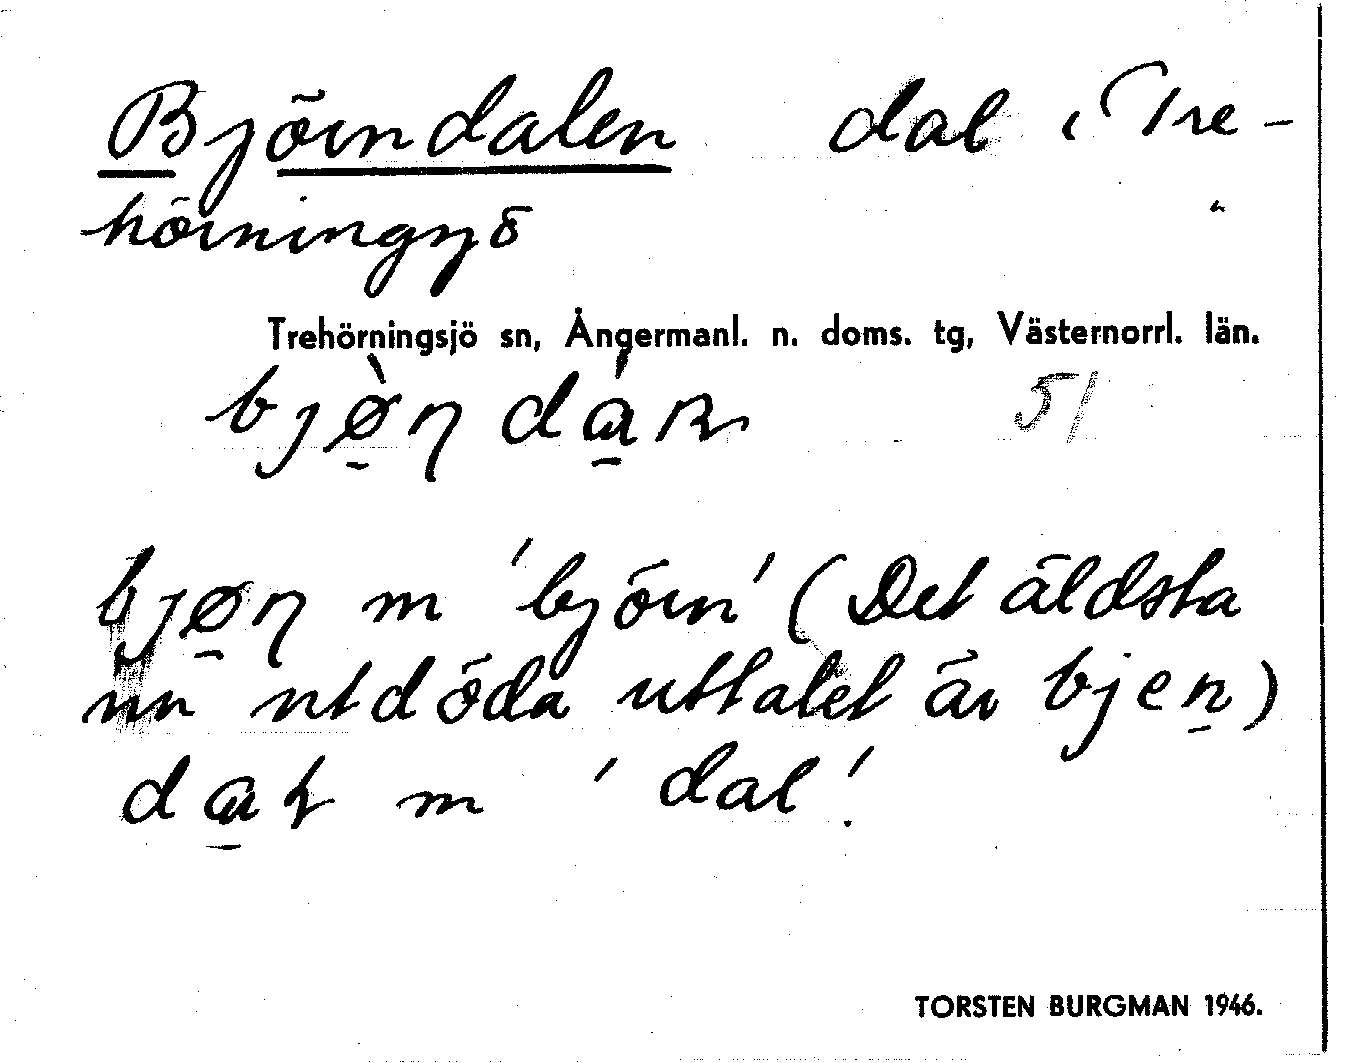 Björndalen dal i Tre-
hörningsjö
Trehörningsjö sn, Ångermanl. n. doms. tg, Västernorrl. län.
51
m 'björn' (Det äldsta
nu utdöda uttalet är bjen)
daɫ m 'dal'.
TORSTEN BURGMAN 1946.